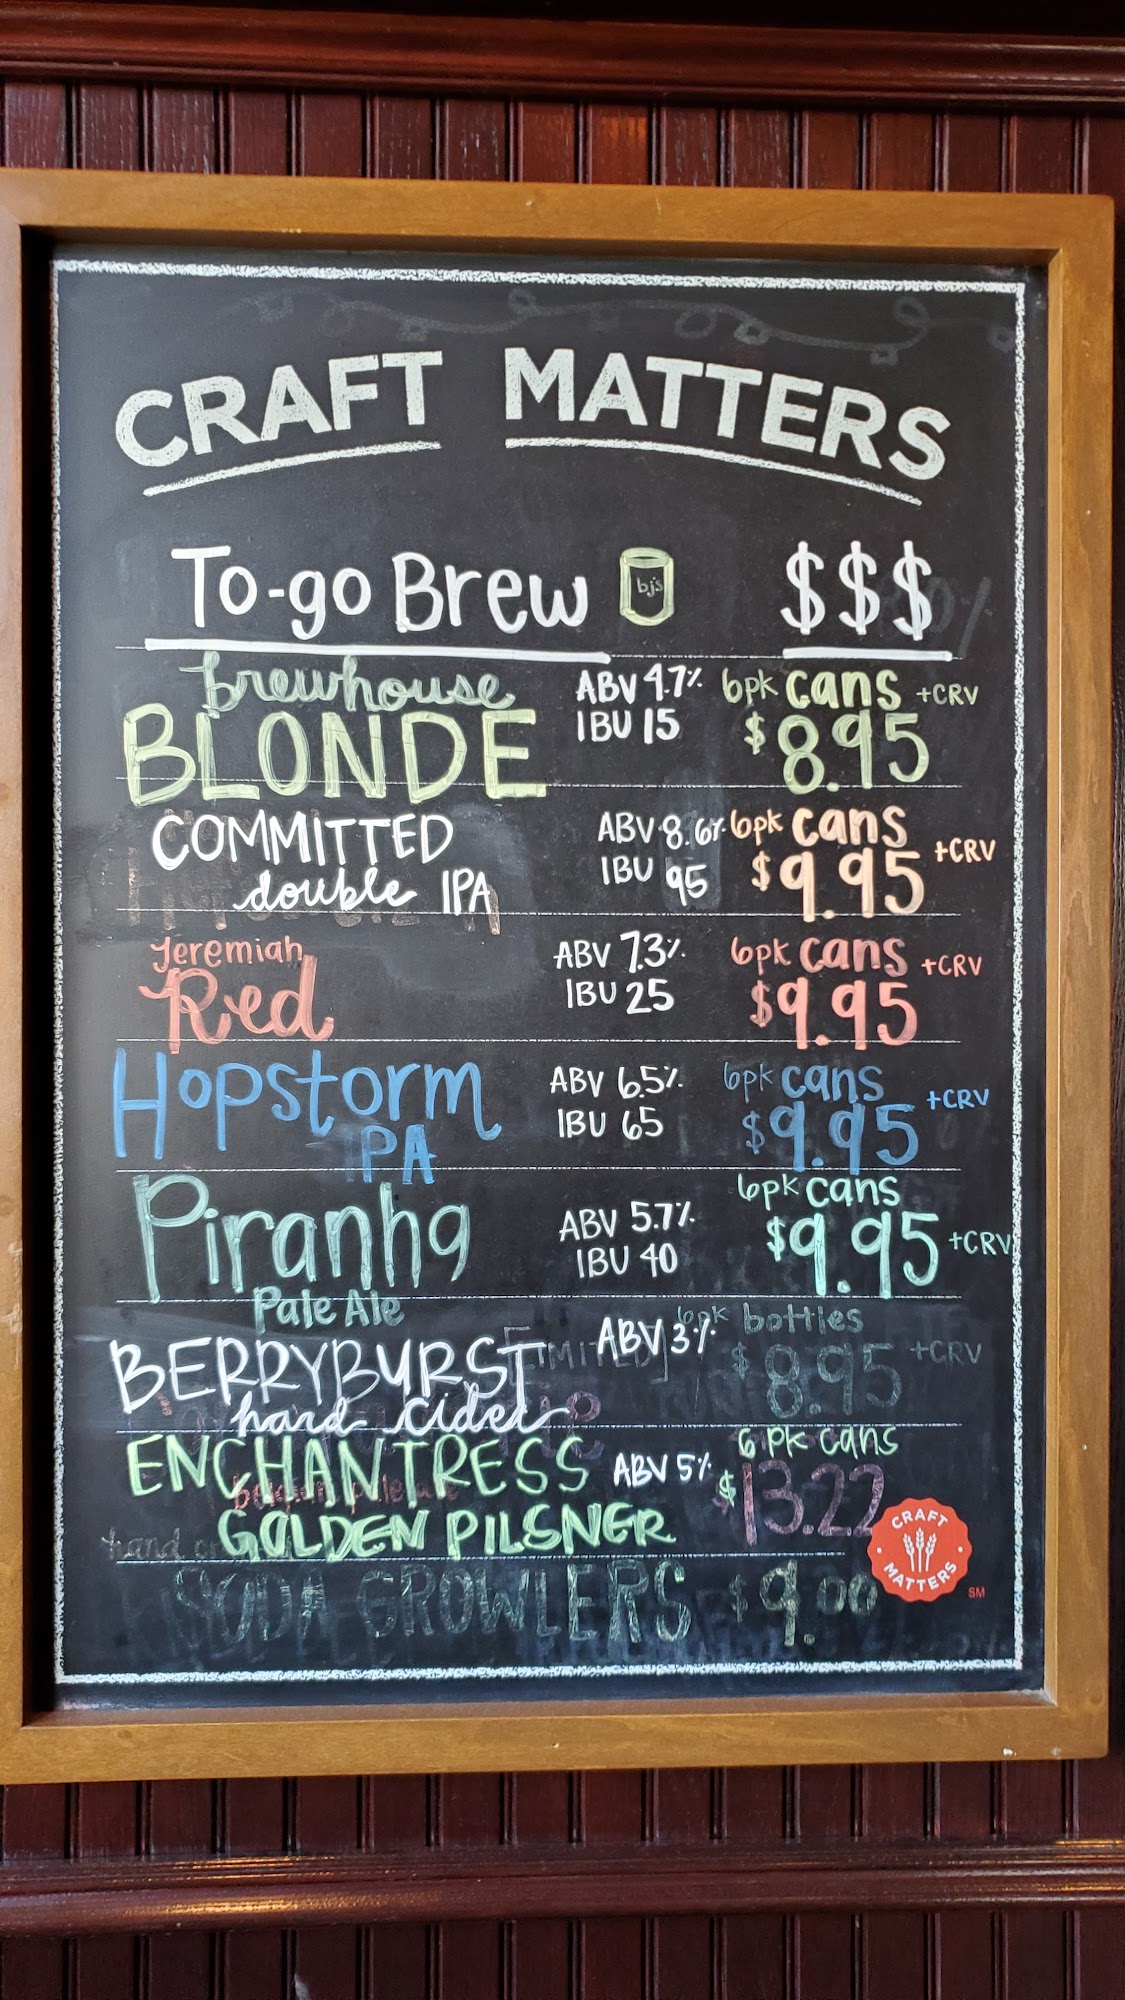 CRAFT MATTERS
To-go Brew bjs $$$
brewhouse ABV 4.7% 6pk cans +CRV
BLONDE IBU 15 $8.95
COMMITTED ABV 8.6% 6pk cans
double IPA IBU 95 $9.95 +CRV
Jeremiah ABV 7.3% 6pk cans +CRV
Red IBU 25 $9.95
Hopstorm ABV 6.5% 6pk cans
IPA IBU 65 $9.95 +CRV
Piranha ABV 5.7% 6pk cans
Pale Ale IBU 40 $9.95 +CRV
BERRYBURST [LIMITED] ABV 3% 6pk bottles
hard cider $8.95 +CRV
ENCHANTRESS ABV 5% 6 pk cans
GOLDEN PILSNER $13.22
SODA GROWLERS $9.00
CRAFT MATTERS SM